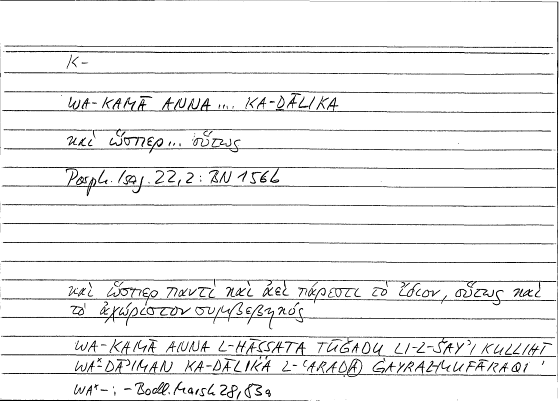 K-
WA-KAMĀ ANNA ... KA-ḎĀLIKA
καὶ ὥσπερ... οὕτως
Porph. Isag. 22,2: BN 156b
καὶ ὥσπερ παντὶ καὶ ἀεὶ πάρεστι τὸ ἴδιον, οὕτως καὶ
τὸ ἀχώριστον συμβεβηκός
WA-KAMĀ ANNA L-ḪĀṢṢATA TŪǦADU LI-L-ŠAYʾI KULLIHĪ
WAˣ-DĀʾIMAN KA-ḎĀLIKA L-ʿARADA ĠAYRALMUFĀRAQI
WAˣ-: - Bodl. Marsh 28, 83a